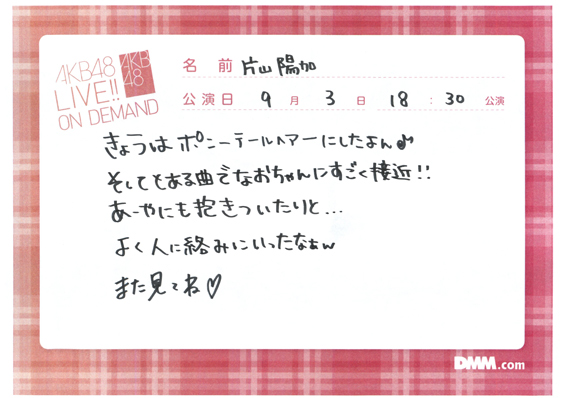 AKB48
LIVE!!
ON DEMAND
AKB
48
名 前 片山 陽加
公演日 9 月 3 日 18 : 30 公演
きょうはポニーテールヘアーにしたよん♪
そしてとある曲でなおちゃんにすごく接近!!
あーやにも抱きついたりと...
よく人に絡みにいったなぁw
また見てね♡
DMM.com